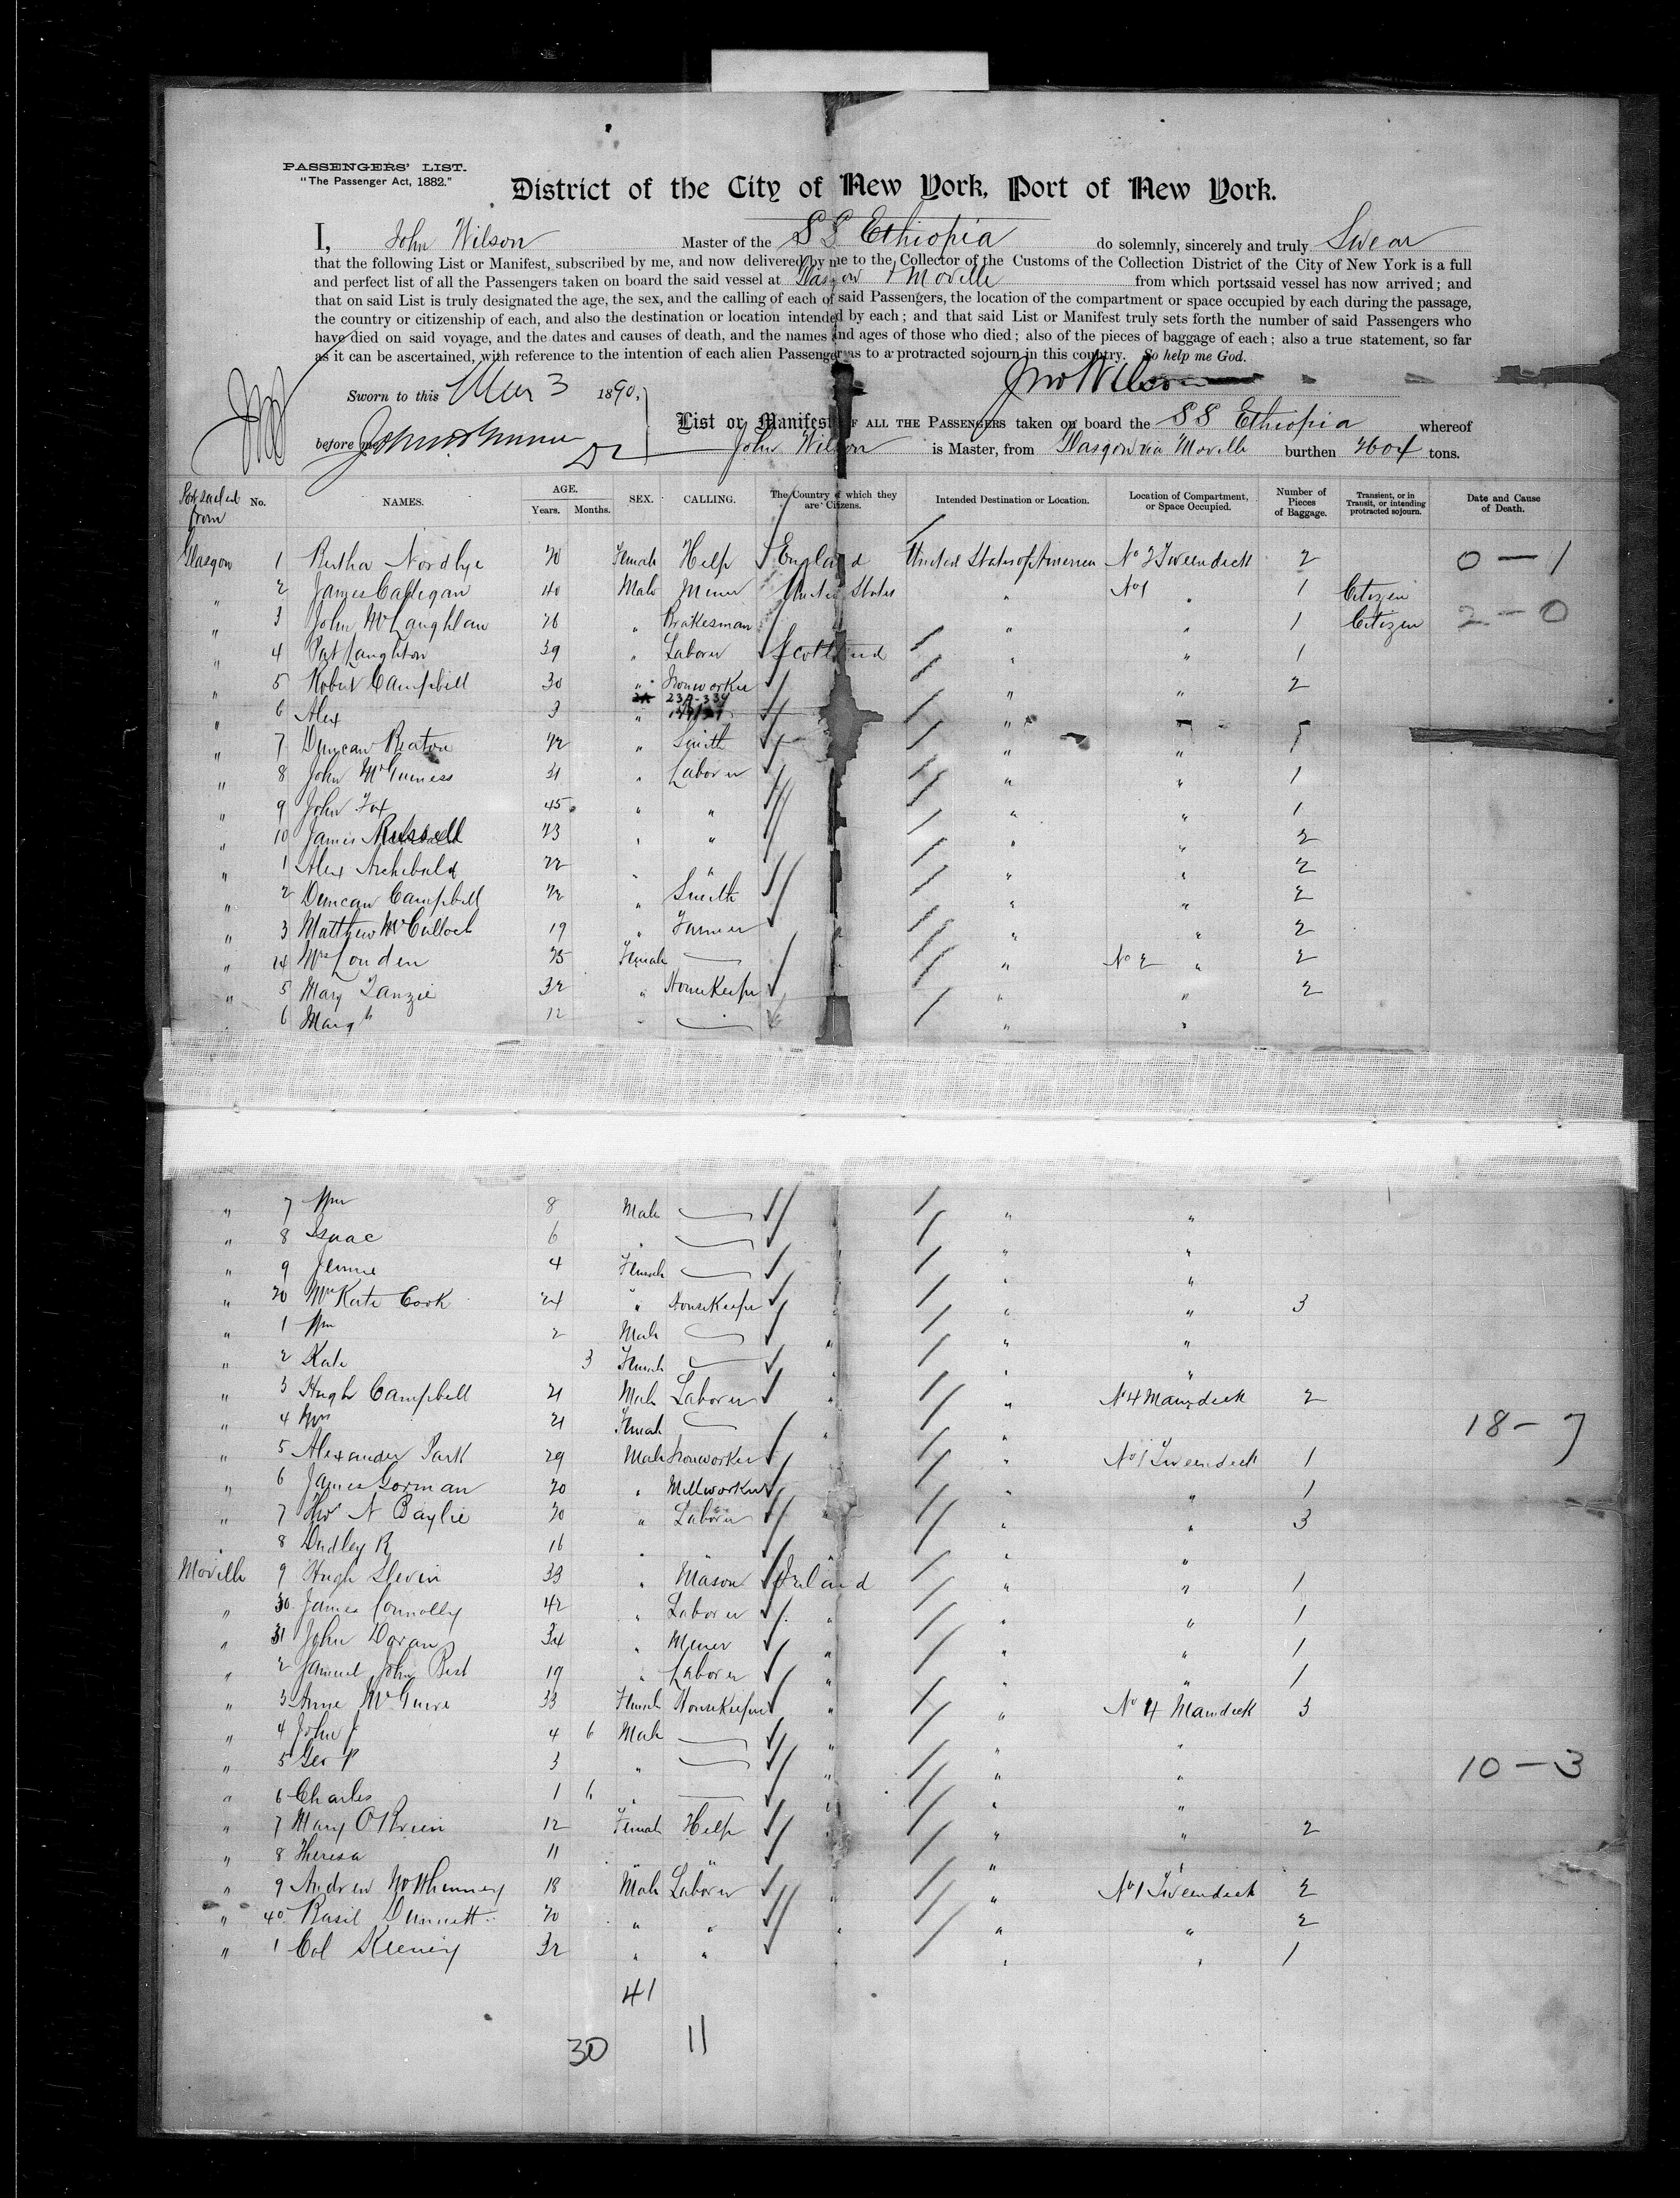 PASSENGERS' LIST.
"The Passenger Act, 1882."
District of the City of New York, Port of New York.
I, John Wilson Master of the SS Ethiopia do solemnly, sincerely and truly Swear
that the following List or Manifest, subscribed by me, and now delivered by me to the Collector of the Customs of the Collection District of the City of New York is a full
and perfect list of all the Passengers taken on board the said vessel at Glasgow & Moville from which port said vessel has now arrived; and
that on said List is truly designated the age, the sex, and the calling of each of said Passengers, the location of the compartment or space occupied by each during the passage,
the country or citizenship of each, and also the destination or location intended by each; and that said List or Manifest truly sets forth the number of said Passengers who
have died on said voyage, and the dates and causes of death, and the names and ages of those who died; also of the pieces of baggage of each; also a true statement, so far
as it can be ascertained, with reference to the intention of each alien Passenger as to a protracted sojourn in this country. So help me God.
Jno Wilson
Sworn to this Mar 3 1890,
before me
List or Manifest OF ALL THE PASSENGERS taken on board the SS Ethiopia whereof
John Wilson is Master, from Glasgow via Moville burthen 2604 tons.
Port sailed from No. NAMES. AGE. Years. Months. SEX. CALLING. The Country of which they are Citizens. Intended Destination or Location. Location of Compartment, or Space Occupied. Number of Pieces of Baggage. Transient, or in Transit, or intending protracted sojourn. Date and Cause of Death.
Glasgow 1 Bertha Nordbye 20 Female Help England United States of America No 2 Tweendeck 2 0-1
" 2 James Caffegan 40 Male Miner United States " No 1 " 1 Citizen
" 3 John McLaughlan 26 " Brakesman " " 1 Citizen 2-0
" 4 Pat Laughton 39 " Laborer Scotland " " 1
" 5 Robert Campbell 30 " Ironworker " " 2
" 6 Alex 3 " "
" 7 Duncan Beaton 22 " Smith " " 1
" 8 John McGuiness 31 " Laborer " " 1
" 9 John Fox 45 " " " " 1
" 10 James Russell 23 " " " " 2
" 1 Alex Archibald 22 " " " " 2
" 2 Duncan Campbell 22 " Smith " " 2
" 3 Matthew McCulloch 19 " Farmer " " 2
" 14 Mrs Louden 25 Female " No 2 " 2
" 5 Mary Tanzie 32 " Housekeeper " " 2
" 6 Margt 12 " " "
" 7 Wm 8 Male " "
" 8 Isaac 6 " " "
" 9 Jennie 4 Female " "
" 20 Mrs Kate Cook 24 " Housekeeper " " 3
" 1 Wm 2 Male " " "
" 2 Kate 3 Female " " "
" 3 Hugh Campbell 21 Male Laborer " " No 4 Maindeck 2
" 4 Mrs 21 Female " " 18-7
" 5 Alexander Park 29 Male Ironworker " No 1 Tweendeck 1
" 6 James Gorman 20 " Millworker " " 1
" 7 Thos N Baylie 20 " Laborer " " 3
" 8 Dudley R 16 " " " "
Moville 9 Hugh Slevin 33 " Mason Ireland " " 1
" 30 James Connolly 42 " Laborer " " " 1
" 31 John Doran 34 " Miner " " " 1
" 2 Samuel John Best 19 " Laborer " " " 1
" 3 Anne McGuire 33 Female Housekeeper " " No 4 Maindeck 3
" 4 John J 4 6 Male " " "
" 5 Geo P 3 " " " " 10-3
" 6 Charles 1 6 " " " "
" 7 Mary O'Brien 12 Female Help " " 2
" 8 Theresa 11 " " " "
" 9 Andrew 18 Male Laborer " " No 1 Tweendeck 2
" 40 Basil Dunnett 20 " " " " " 2
" 1 Col Keeney 32 " " " " 1
41
30 11